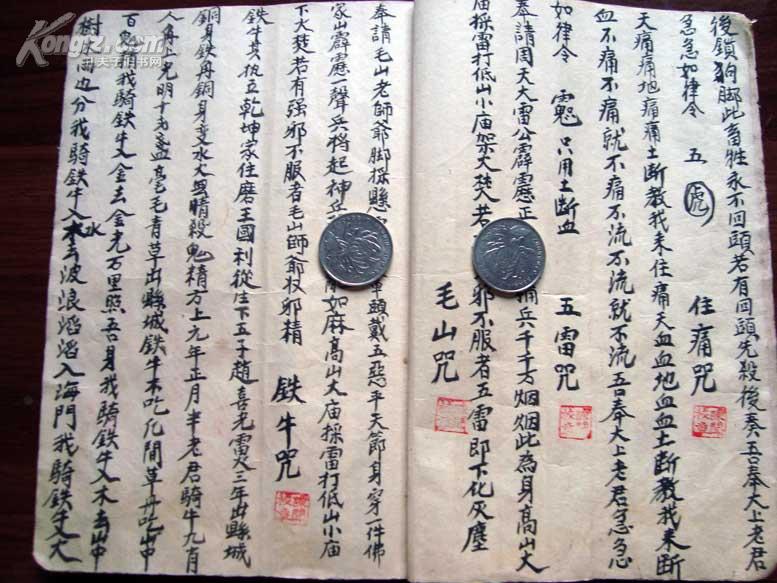 後鎖狗脚此畜牲永不回頭若有回頭先殺後奏吾奉大上老君
急急如律令 五 虎 住痛咒
天痛痛地痛痛土断教我来住痛天血血地血血土断教我来断
血不痛不痛就不痛不流不流就不流吾奉大上老君急急
如律令 只用土断血 五雷咒
奉請周天大雷公霹靂正 兵千千万烟烟此為身高山大
庙採雷打低山小庙架火焚若 邪不服者五雷即下化灰塵
毛山咒
奉請毛山老師爺脚採 頭戴五 平天節身穿一件佛
家山霹靂一聲兵将起神兵 如麻高山大庙採雷打低山小庙
下火焚若有强邪不服者毛山師爺收邪精 鉄牛咒
鉄牛 执立乾坤家住磨王國利從庄下五子趙喜光雷 三年出縣城
銅身鉄舟銅身变水 晴殺鬼精方上元年正月半老君騎牛九月
人 光明十 毫毛青草出縣城鉄牛不吃凡間草 吃山中
百 我騎鉄牛入金去金光万里照吾身我騎鉄牛入木去山中
樹木両边分我騎鉄牛入水去波浪滔滔入海門我騎鉄牛入火
Kongfz.com
孔夫子旧书网